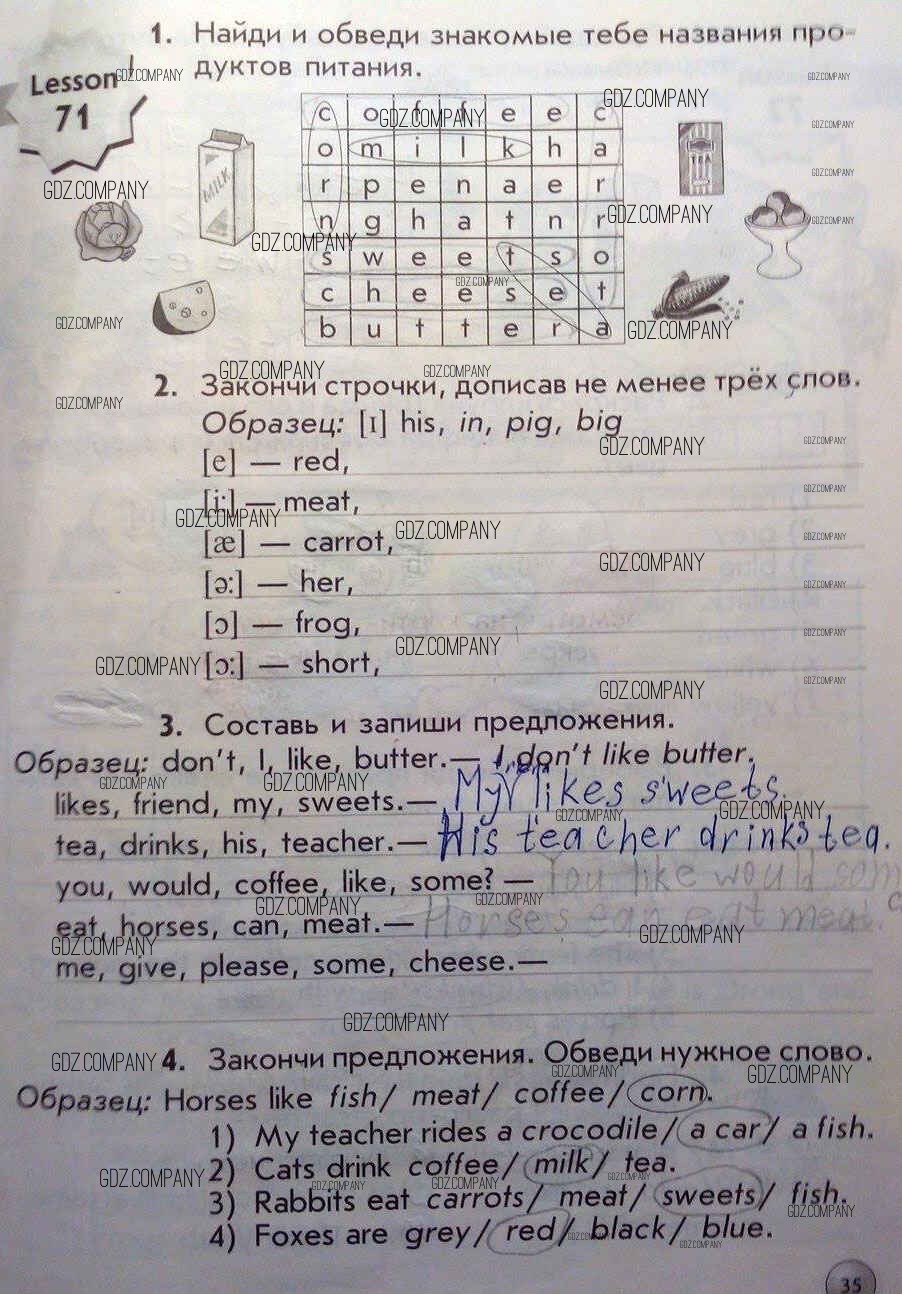 1. Найди и обведи знакомые тебе названия про-
дуктов питания.
Lesson
71
GDZ.COMPANY
MILK
c o f f e e c
o m i l k h a
r p e n a e r
n g h a t n r
s w e e t s o
c h e e s e t
b u t t e r a
2. Закончи строчки, дописав не менее трёх слов.
Образец: [ɪ] his, in, pig, big
[e] — red,
[i:] — meat,
[æ] — carrot,
[ə:] — her,
[ɔ] — frog,
[ɔ:] — short,
3. Составь и запиши предложения.
Образец: don't, I, like, butter.— I don't like butter.
likes, friend, my, sweets.— My likes sweets.
tea, drinks, his, teacher.— His teacher drinks tea.
you, would, coffee, like, some? — You like would som
eat, horses, can, meat.— Horses can eat meat.
me, give, please, some, cheese.—
4. Закончи предложения. Обведи нужное слово.
Образец: Horses like fish/ meat/ coffee/ corn.
1) My teacher rides a crocodile/ a car/ a fish.
2) Cats drink coffee/ milk/ tea.
3) Rabbits eat carrots/ meat/ sweets/ fish.
4) Foxes are grey/ red/ black/ blue.
35